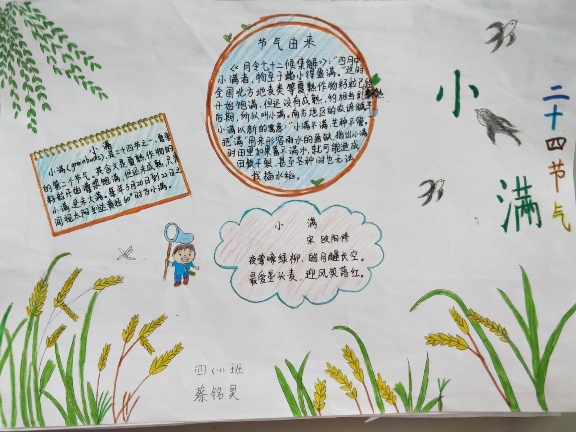 二十四节气
小满
节气由来
《月令七十二候集解》:"四月中
小满者,物至于此小得盈满。"这时
全国北方地麦类等夏熟作物籽粒已
开始饱满,但还没有成熟,约相当乳熟
后期,所以叫小满。南方地区的农谚赋予
小满以新的寓意:"小满不满,芒种不管"
把"满"用来形容雨水的盈缺,指出小满
时田里如果蓄不满水,就可能造成
田坎干裂,甚至芒种时也无法
栽插水稻。
小满
小满是二十四节气之一,夏季
的第二个节气。其含义是夏熟作物的
籽粒开始灌浆饱满,但还未成熟,只是
小满,还未大满。每年5月20日到22日之
间视太阳到达黄经60°时为小满。
小满
宋 欧阳修
夜莺啼绿柳,皓月醒长空。
最爱垄头麦,迎风笑落红。
四(二)班
蔡铭昊